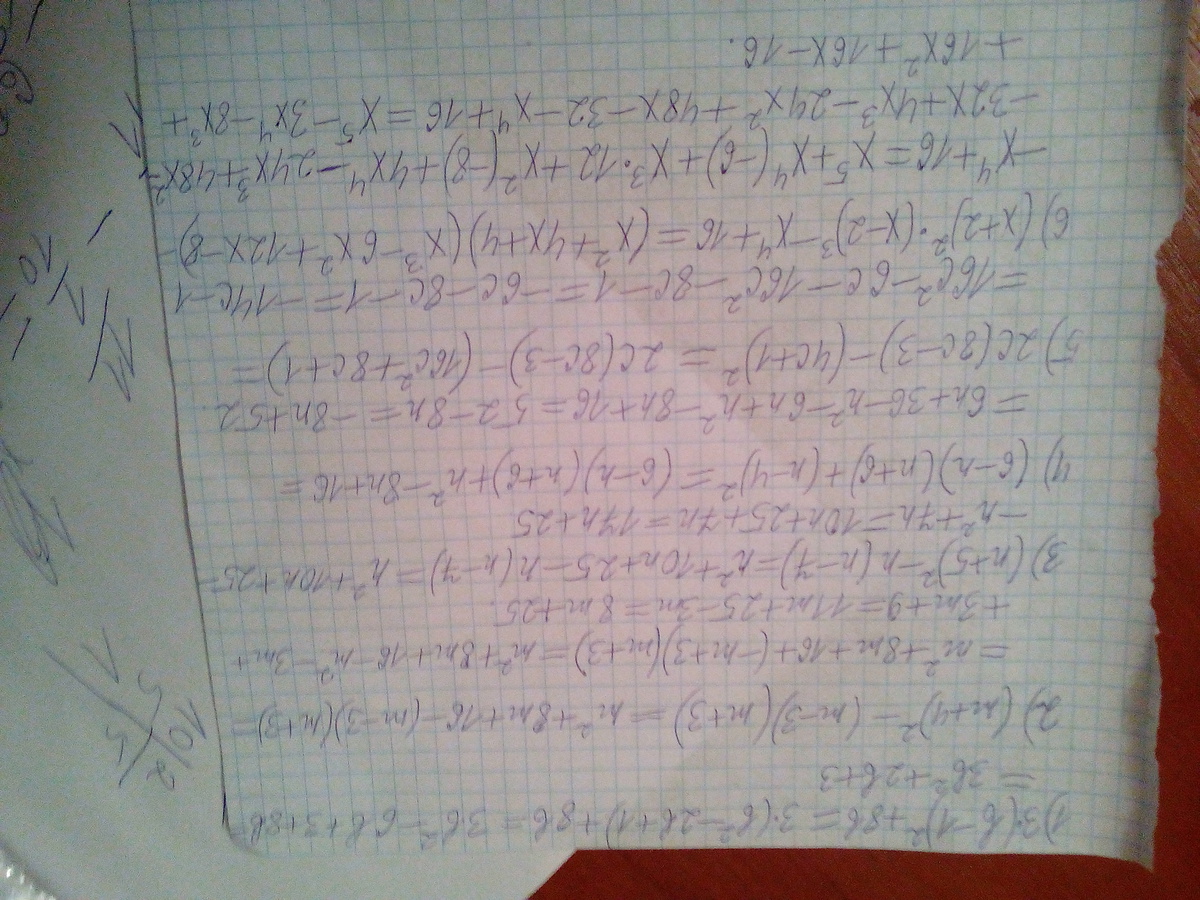 1) 3·(b-1)²+8b = 3·(b²-2b+1)+8b = 3b²-6b+3+8b=
= 3b²+2b+3
2) (m+4)² - (m-3)(m+3) = m²+8m+16-(m-3)(m+3)=
= m²+8m+16+(-m+3)(m+3) = m²+8m+16-m²-3m+
+3m+9 = 11m+25-3m = 8m+25.
3) (n+5)²-n(n-7) = n²+10n+25-n(n-7) = n²+10n+25-
-n²+7n = 10n+25+7n = 17n+25
4) (6-n)(n+6)+(n-4)² = (6-n)(n+6)+n²-8n+16 =
= 6n+36-n²-6n+n²-8n+16 = 52-8n = -8n+52.
5) 2c(8c-3)-(4c+1)² = 2c(8c-3)-(16c²+8c+1) =
= 16c²-6c-16c²-8c-1 = -6c-8c-1 = -14c-1
6) (x+2)²·(x-2)³-x⁴+16 = (x²+4x+4)(x³-6x²+12x-8)-
-x⁴+16 = x⁵+x⁴(-6)+x³·12+x²(-8)+4x⁴-24x³+48x²-
-32x+4x³-24x²+48x-32-x⁴+16 = x⁵-3x⁴-8x³+
+16x²+16x-16.